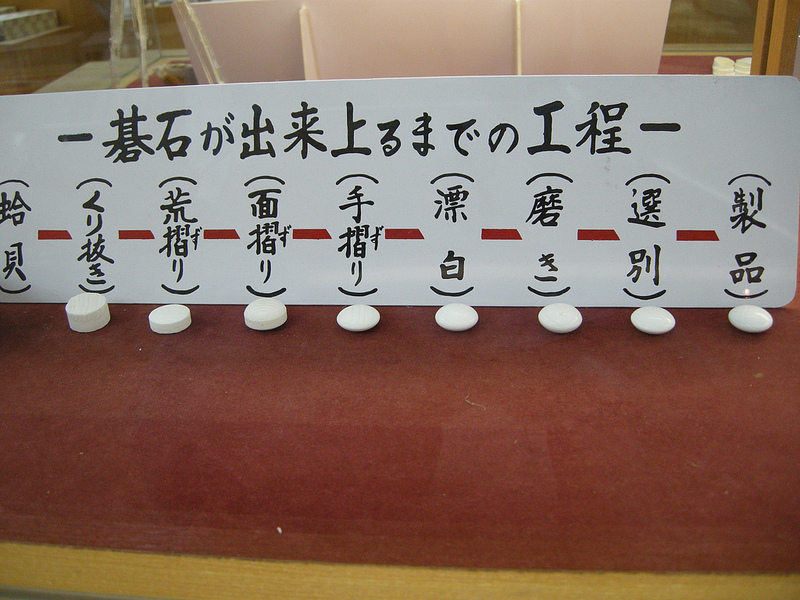 ー碁石が出来上るまでの工程ー
(蛤貝)
(くり抜き)
(荒摺り)
ず
(面摺り)
ず
(手摺り)
ず
(漂白)
(磨き)
(選別)
(製品)